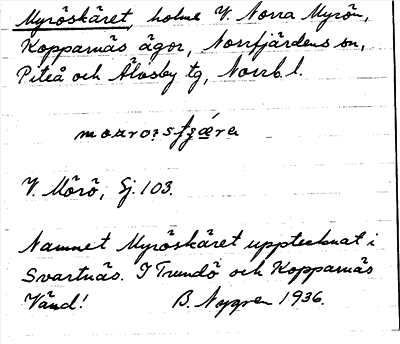 Myröskäret, holme V. Norra Myrön,
Kopparnäs ägor, Norrfjärdens sn,
Piteå och Älvsby tg, Norrb. l.
V. Mörö, Ej. 103.
Namnet Myröskäret upptecknat i
Svartnäs. I Trundö och Kopparnäs
Vänd! B. Nygren 1936.